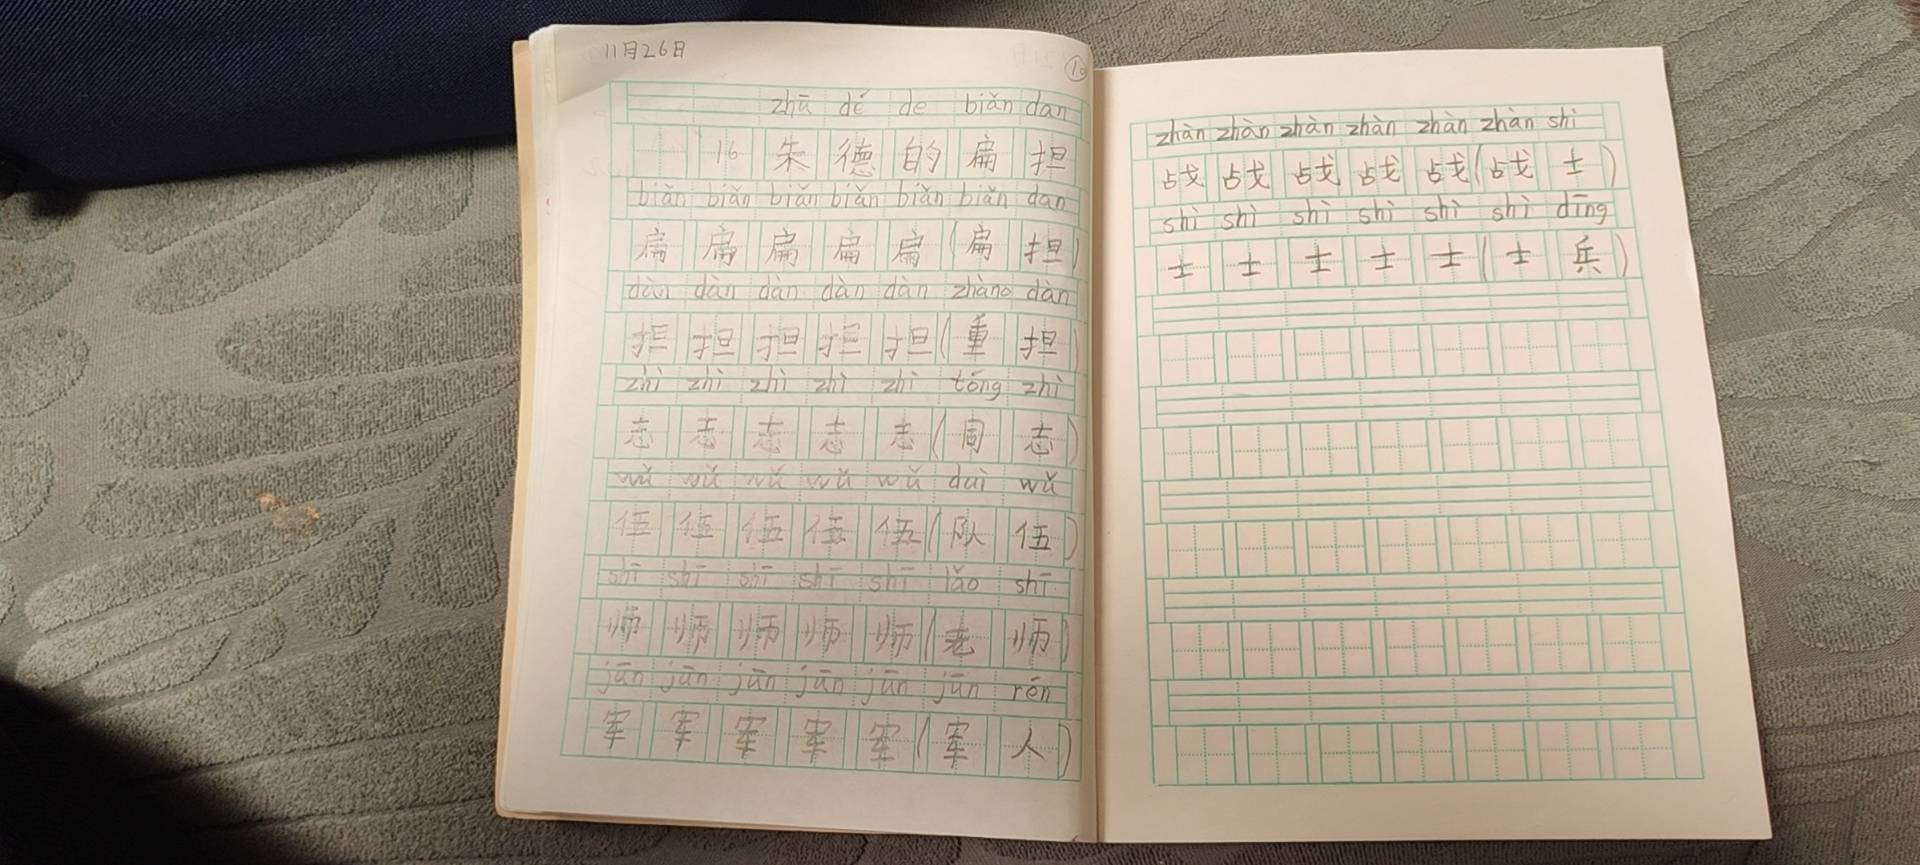 11月26日
10
zhū dé de biǎn dan
16 朱德的扁担
biǎn biǎn biǎn biǎn biǎn biǎn dan
扁 扁 扁 扁 扁 (扁 担)
dàn dàn dàn dàn dàn zhàng dàn
担 担 担 担 担 (重 担)
zhì zhì zhì zhì zhì tóng zhì
志 志 志 志 志 (同 志)
wǔ wǔ wǔ wǔ wǔ duì wǔ
伍 伍 伍 伍 伍 (队 伍)
shī shī shī shī shī lǎo shī
师 师 师 师 师 (老 师)
jūn jūn jūn jūn jūn jūn rén
军 军 军 军 军 (军 人)
zhàn zhàn zhàn zhàn zhàn zhàn shì
战 战 战 战 战 (战 士)
shì shì shì shì shì shì dīng
士 士 士 士 士 (士 兵)